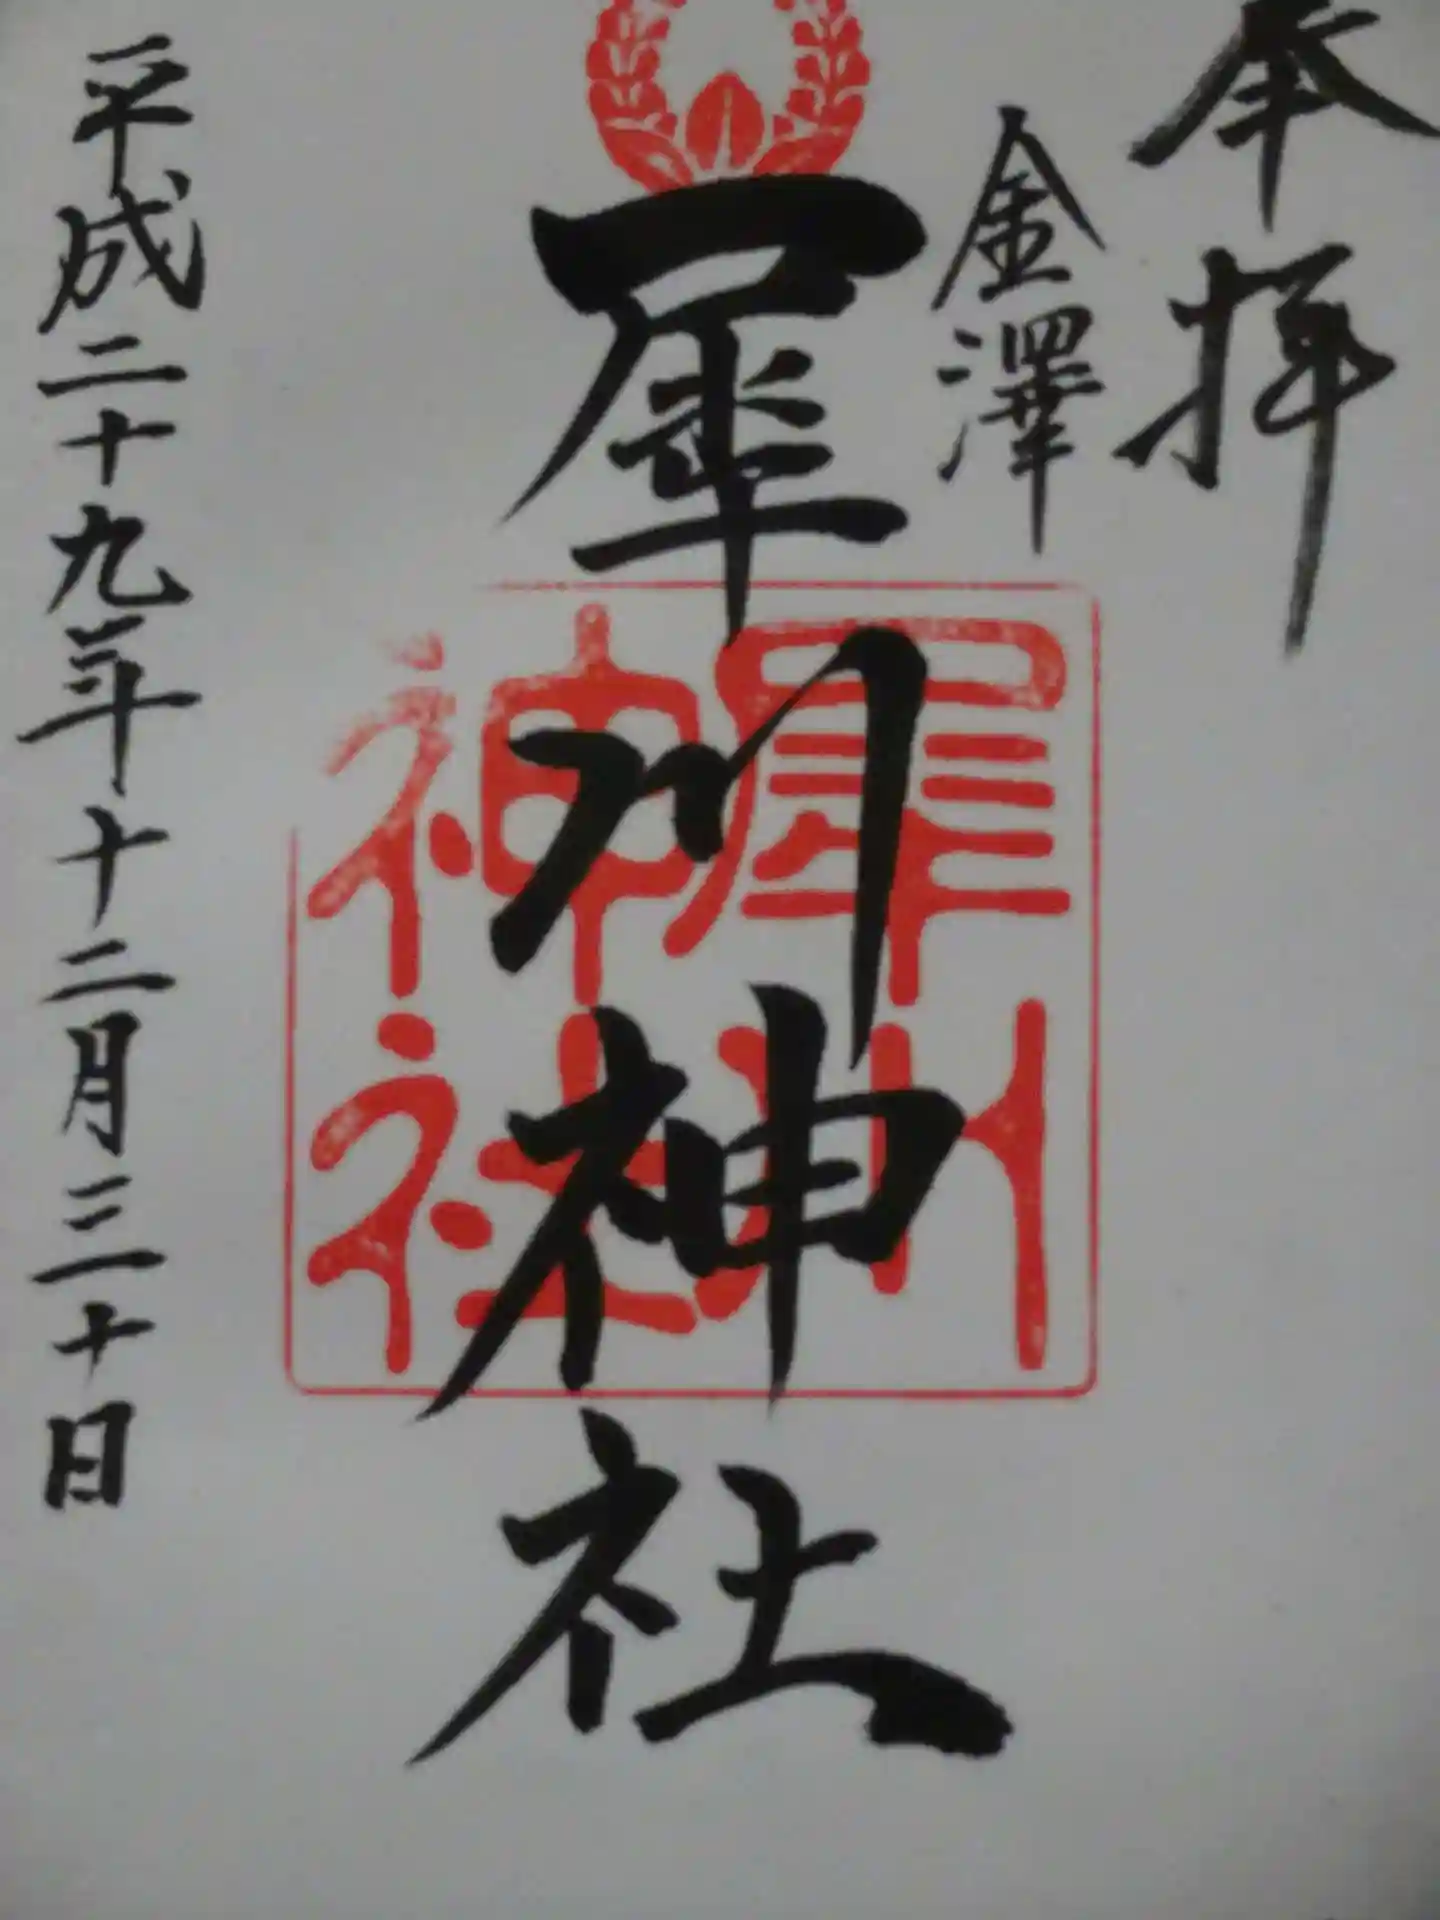 奉拝
金澤
犀川神社
犀川
神社
平成二十九年十二月三十日